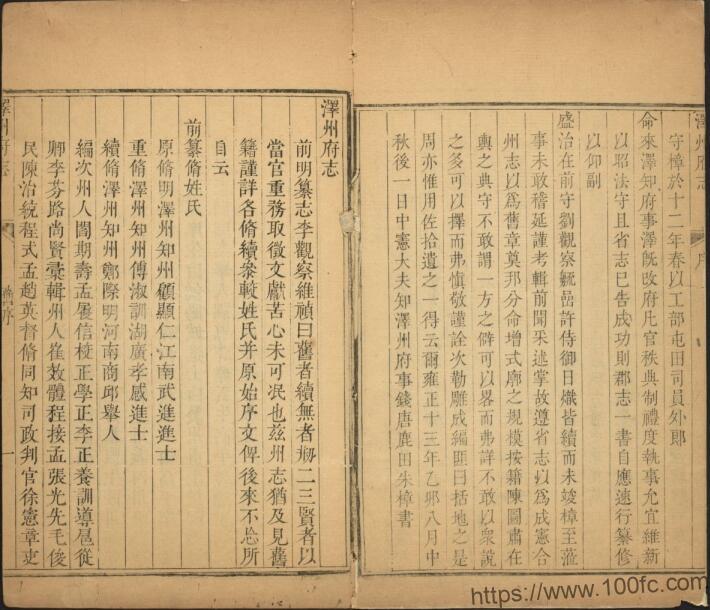 澤州府志
序
守樟於十二年春以工部屯田司員外郎
命來澤知府事澤旣改府凡官秩典制禮度執事允宜維新
以昭法守且省志已告成功則郡志一書自應速行纂修
以仰副
盛治在前守劉觀察毓嵒許侍御日熾皆續而未竣樟至蒞
事未敢稽延謹考輯前聞采述掌故遵省志以爲成憲合
州志以爲舊章莫邦分命增式廓之規模按籍陳圖肅在
輿之典守不敢謂一方之僻可以畧而弗詳不敢以衆說
之多可以擇而弗愼敬謹詮次勒雕成編匪曰括地之是
周亦惟用佐拾遺之一得云爾雍正十三年乙卯八月中
秋後一日中憲大夫知澤州府事錢唐鹿田朱樟書
澤州府志
前明纂志李觀察維禎曰舊者續無者刱二三賢者以
當官重務取徵文獻苦心未可泯也玆州志猶及見舊
籍謹詳各脩續叅較姓氏并原始序文俾後來不忘所
自云
前纂脩姓氏
原脩明澤州知州顧顯仁江南武進進士
重脩澤州知州傅淑訓湖廣孝感進士
續脩澤州知州鄭際明河南商邱舉人
編次州人閻期壽孟屢信校正學正李正養訓導扈從
卿李芬路尚賢彙輯州人崔效體程接孟張光先毛俊
民陳治統程式孟趙英督脩同知司政判官徐憲章吏
澤州府志
舊序
一
https://www.100fc.com